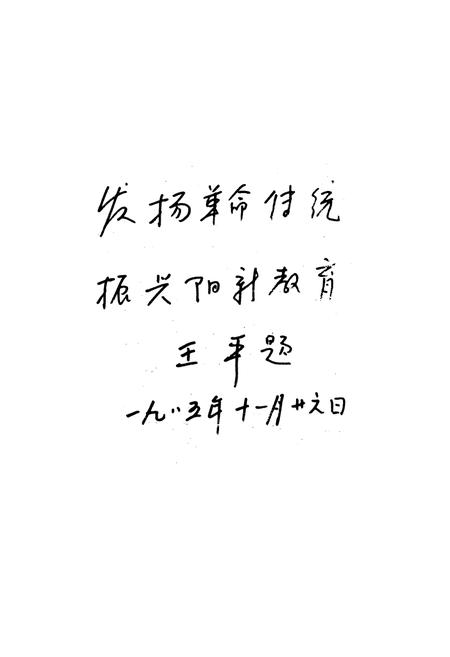 发扬革命传统
振兴阳新教育
王平题
一九八五年十一月廿六日